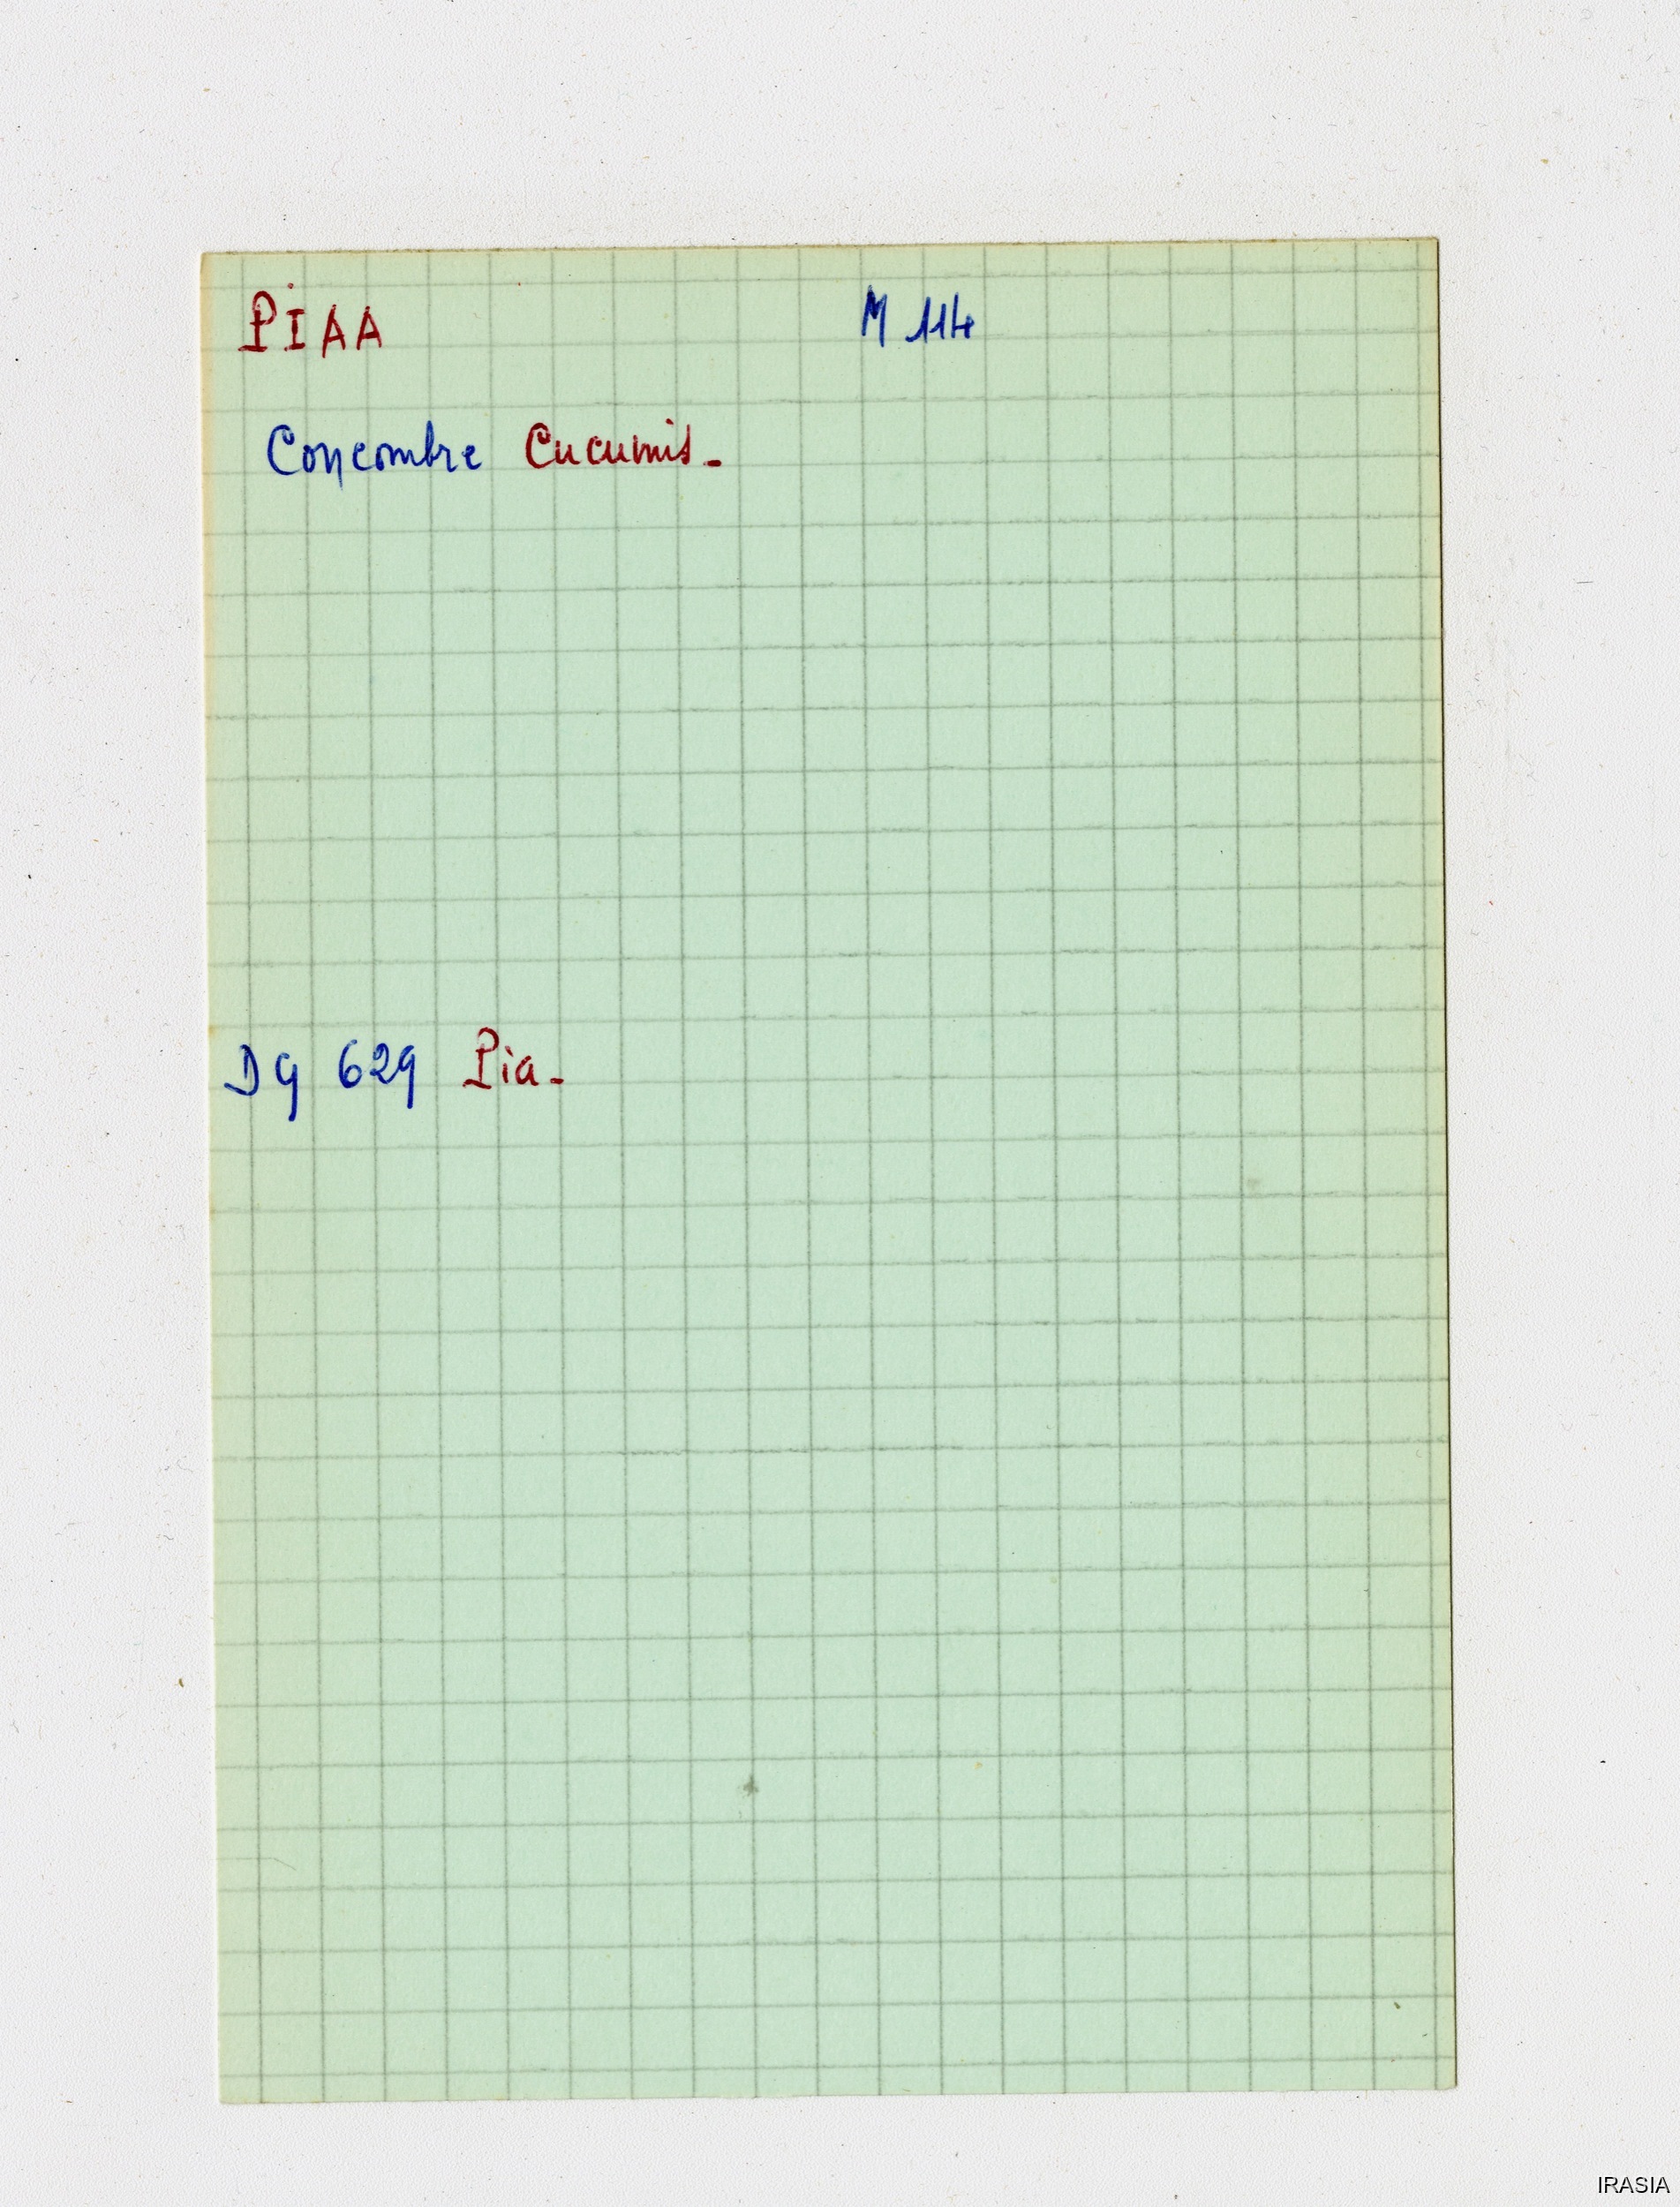 PIAA M 114
Concombre Cucumis_
Dg 629 Pia_
IRASIA